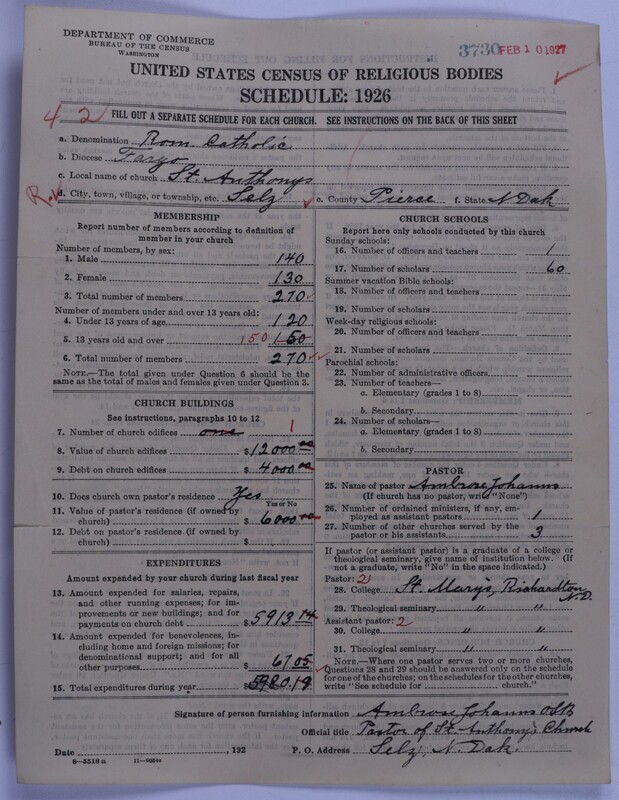 DEPARTMENT OF COMMERCE
BUREAU OF THE CENSUS
WASHINGTON
3730 FEB 10 1927
UNITED STATES CENSUS OF RELIGIOUS BODIES
SCHEDULE: 1926
4 2
FILL OUT A SEPARATE SCHEDULE FOR EACH CHURCH. SEE INSTRUCTIONS ON THE BACK OF THIS SHEET
a. Denomination Rom. Catholic
b. Diocese Fargo
c. Local name of church St. Anthonys
R.
d. City, town, village, or township, etc. Selz e. County Pierce f. State N Dak
MEMBERSHIP
Report number of members according to definition of
member in your church
Number of members, by sex:
1. Male 140
2. Female 130
3. Total number of members 270
Number of members under and over 13 years old:
4. Under 13 years of age 120
5. 13 years old and over 150 150
6. Total number of members 270
NOTE.—The total given under Question 6 should be
the same as the total of males and females given under Question 3.
CHURCH BUILDINGS
See instructions, paragraphs 10 to 12
7. Number of church edifices one 1
8. Value of church edifices $12000.00
9. Debt on church edifices $4000.00
10. Does church own pastor's residence Yes
Yes or No
11. Value of pastor's residence (if owned by
church) $6000.00
12. Debt on pastor's residence (if owned by
church) $
EXPENDITURES
Amount expended by your church during last fiscal year
13. Amount expended for salaries, repairs,
and other running expenses; for im-
provements or new buildings; and for
payments on church debt $5913.14
14. Amount expended for benevolences, in-
cluding home and foreign missions; for
denominational support; and for all
other purposes 67.05
15. Total expenditures during year $5980.19
CHURCH SCHOOLS
Report here only schools conducted by this church
Sunday schools:
16. Number of officers and teachers 1
17. Number of scholars 60
Summer vacation Bible schools:
18. Number of officers and teachers
19. Number of scholars
Week-day religious schools:
20. Number of officers and teachers
21. Number of scholars
Parochial schools:
22. Number of administrative officers
23. Number of teachers—
a. Elementary (grades 1 to 8)
b. Secondary
24. Number of scholars—
a. Elementary (grades 1 to 8)
b. Secondary
PASTOR
25. Name of pastor Ambrose Johanns
(If church has no pastor, write "None")
26. Number of ordained ministers, if any, em-
ployed as assistant pastors 1
27. Number of other churches served by the
pastor or his assistants 3
If pastor (or assistant pastor) is a graduate of a college or
theological seminary, give name of institution below. (If
not a graduate, write "No" in the space indicated.)
Pastor: 2
28. College St. Mary's, Richardton N.D.
29. Theological seminary " "
Assistant pastor: 2
30. College " "
31. Theological seminary " "
NOTE.—Where one pastor serves two or more churches,
Questions 28 and 29 should be answered only on the schedule
for one of the churches; on the schedules for the other churches,
write "See schedule for church."
Signature of person furnishing information Ambrose Johanns
Official title Pastor of St. Anthony's Church
Date , 192 P. O. Address Selz, N. Dak.
8—5518a